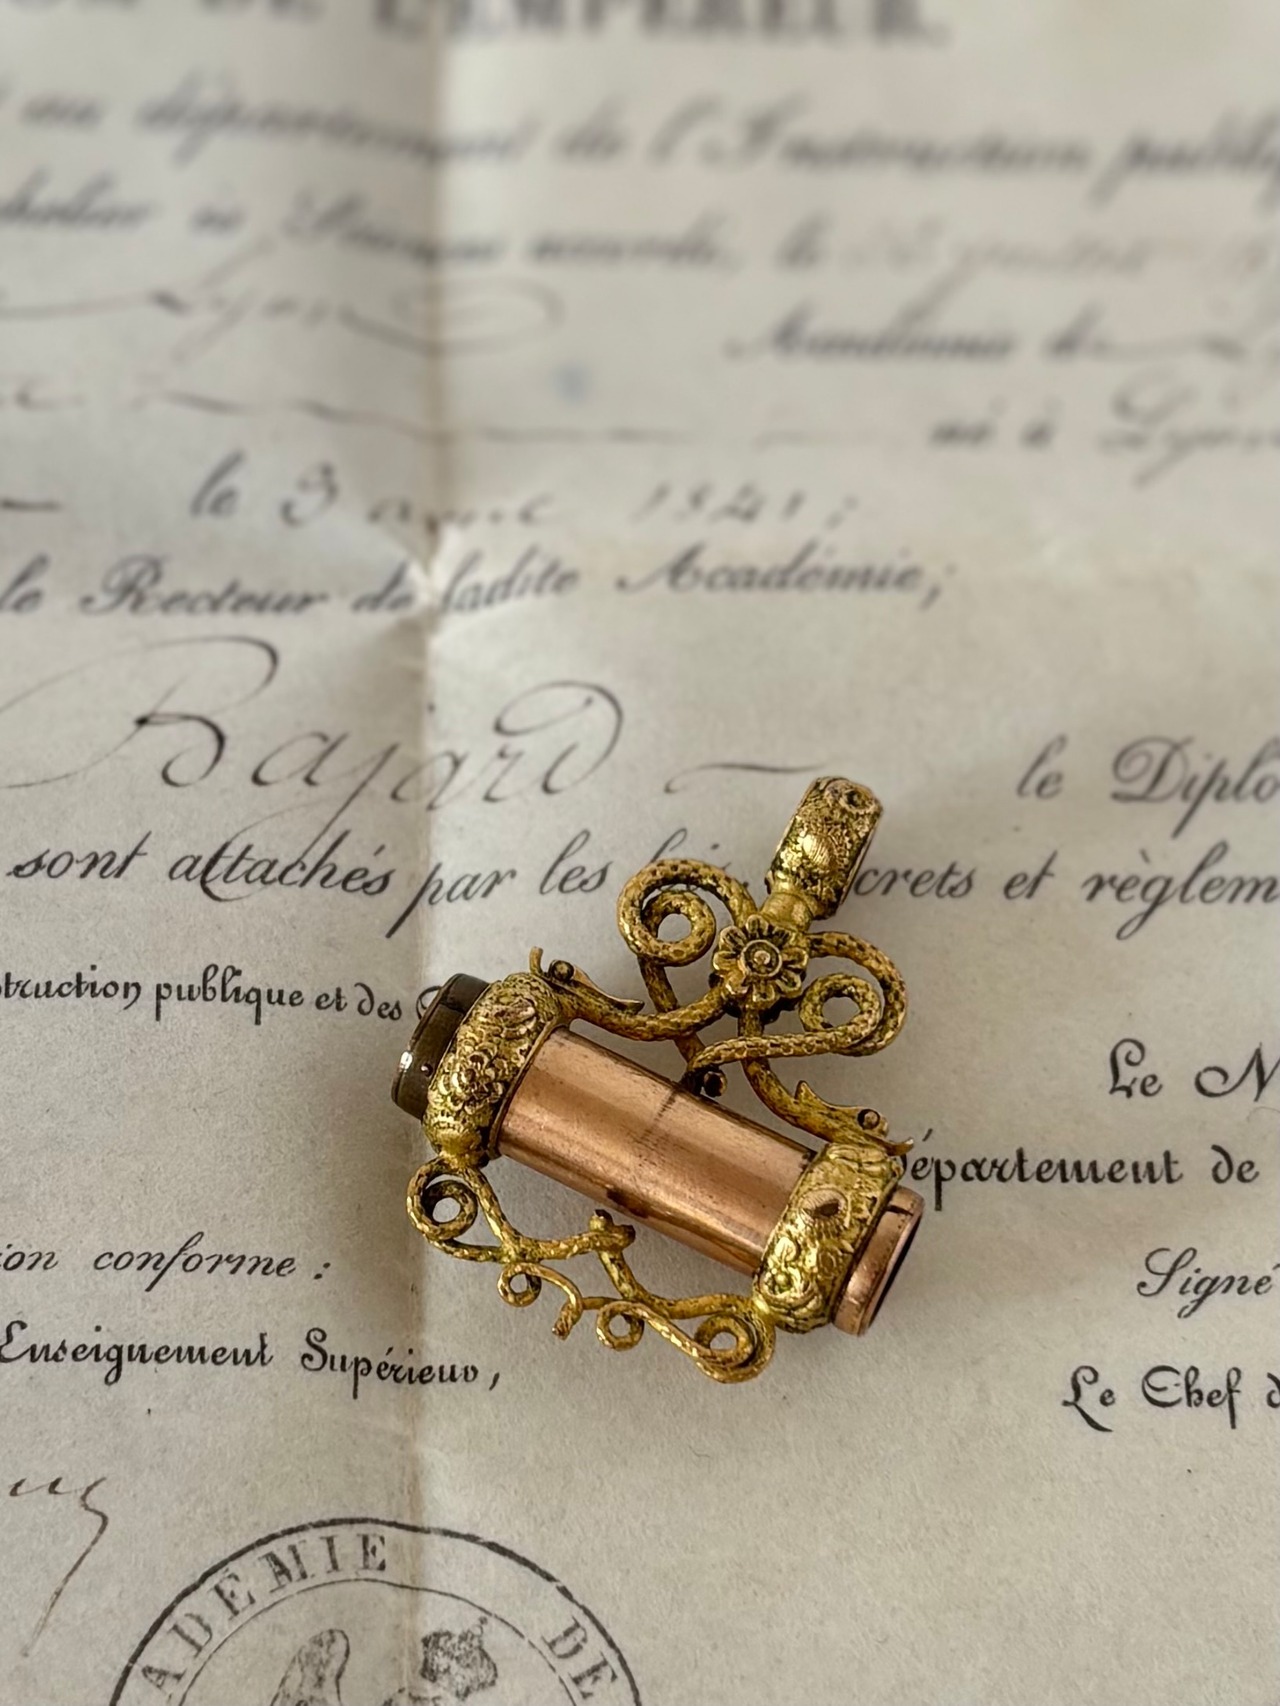 DE L'EMPEREUR.
au département de l'Instruction publiq
le
Lyon
Académie de
né à Lyon
le 3 1841 ;
le Recteur de ladite Académie,
Bajard le Diplo
sont attachés par les crets et règlem
truction publique et des
Le
département de
ion conforme :
Signé
Enseignement Supérieur,
Le Chef d
ADÉMIE DE